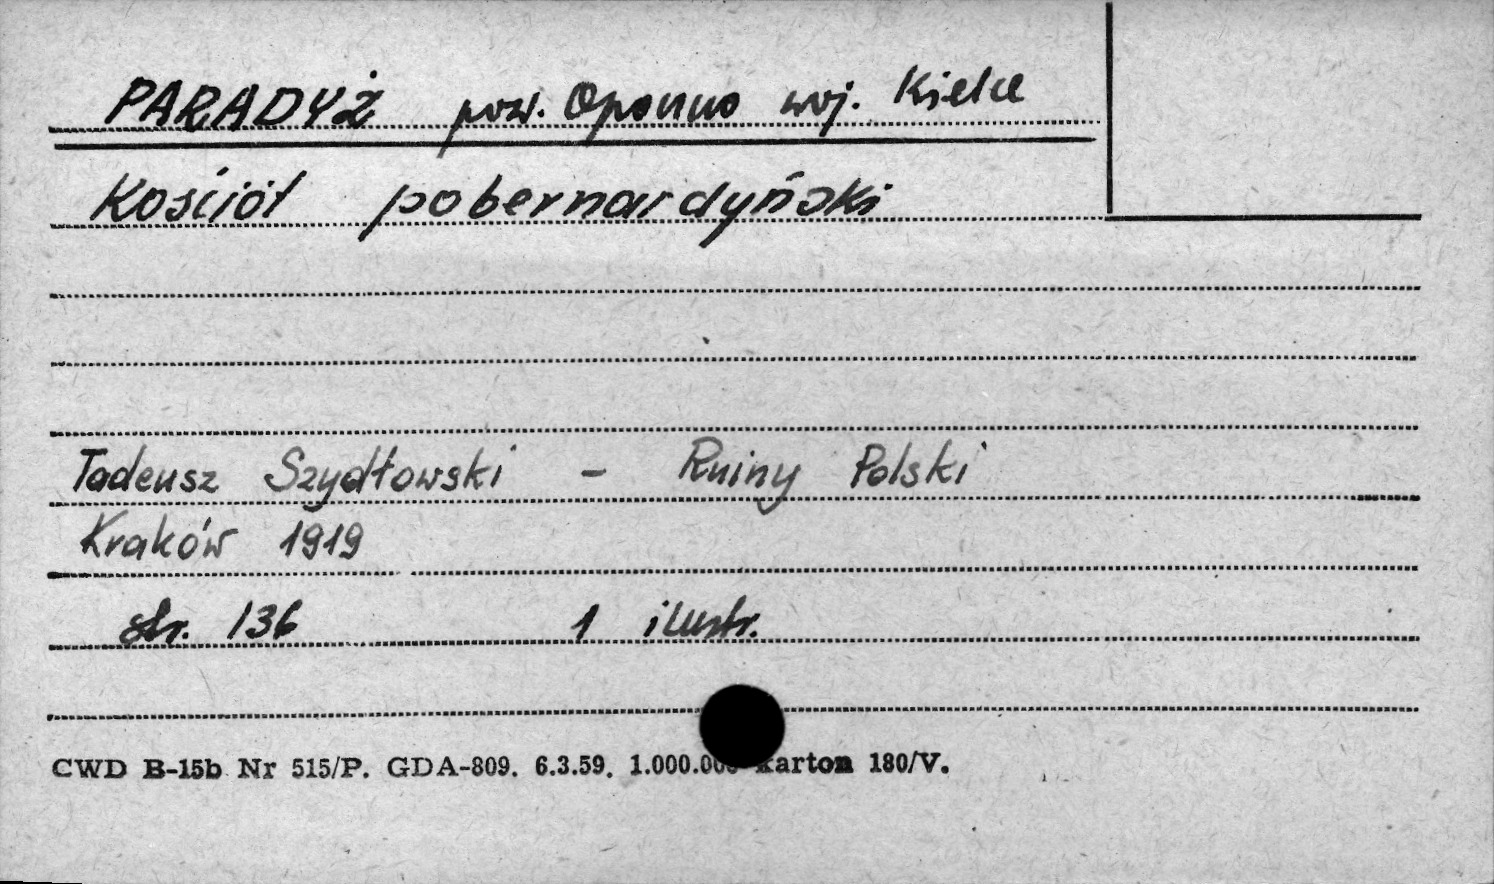 PARADYŻ pow. Opoczno woj. Kielce
Kościół pobernardyński
Tadeusz Szydłowski - Ruiny Polski
Kraków 1919
str. 136 1 ilustr.
CWD B-15b Nr 515/P. GDA-809. 6.3.59. 1.000.000 karton 180/V.